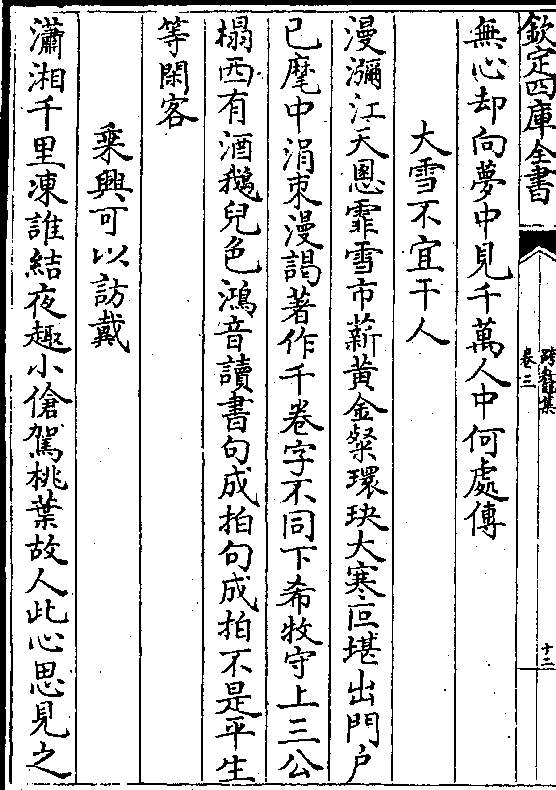 欽定四庫全書
卷三
十二
無心却向夢中見千萬人中何處傳
大雪不宜干人
漫瀰江天恩霏雪市薪黄金粲環玦大寒叵堪出門户
已麾中涓束漫謁著作千卷字不同下希牧守上三公
榻西有酒鵝兒色鴻音讀書句成拍句成拍不是平生
等閑客
乘興可以訪戴
瀟湘千里凍誰結夜趣小傖駕桃葉故人此心思見之